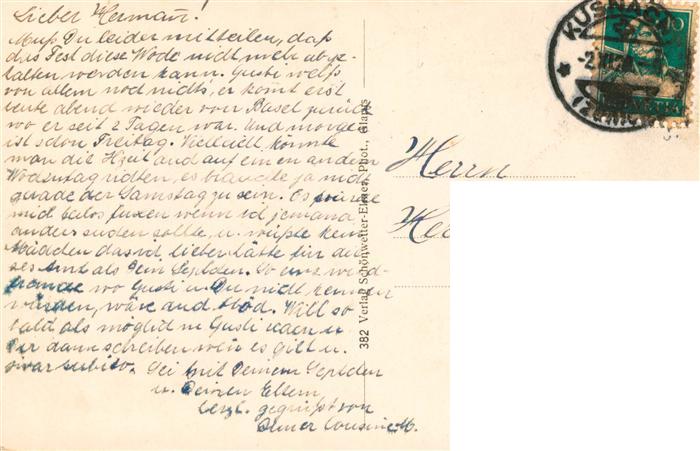 Lieber Hermann!
Muß Du leider mitteilen, daß
das Fest diese Woche nicht mehr abge-
halten werden kann. Gusti weiß
von allem noch nichts, er kommt erst
heute abend wieder von Basel zurück
wo er seit 2 Tagen war. Und morgen
ist schon Freitag. Vielleicht könnte
man die Hzeit auch auf einen andern
Wochentag richten, es brauchte ja nicht
gerade der Samstag zu sein. Es würde
mich fuxen wenn ich jemand
anders suchen sollte, u. wüßte kein
Mädchen das ich lieber hätte für die-
ses Amt als Dein So
wo Gusti u. Du nicht kennen
würden, wäre auch blöd. Will so
bald als möglich m. Gusti u.
Dir dann schreiben wenn es gilt u.
zwar subito. Sei mit Deinem
u. Deinen Eltern
herzl. gegrüßt von
Deiner Cousine M.
382 Verlag Schönwetter-Elmer, Phot., Glarus
KÜSNACHT
Herrn